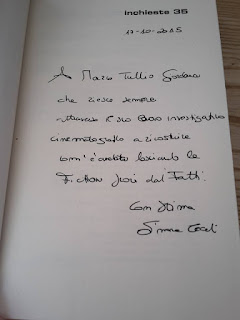 Inchieste 35
17-10-2015
A Marco Tullio Giordana
che riesce sempre
attraverso il suo lavoro investigativo
cinematografico a ricostruire
com'è andata lasciando la
Fiction fuori dai Fatti.
Con stima
Simona